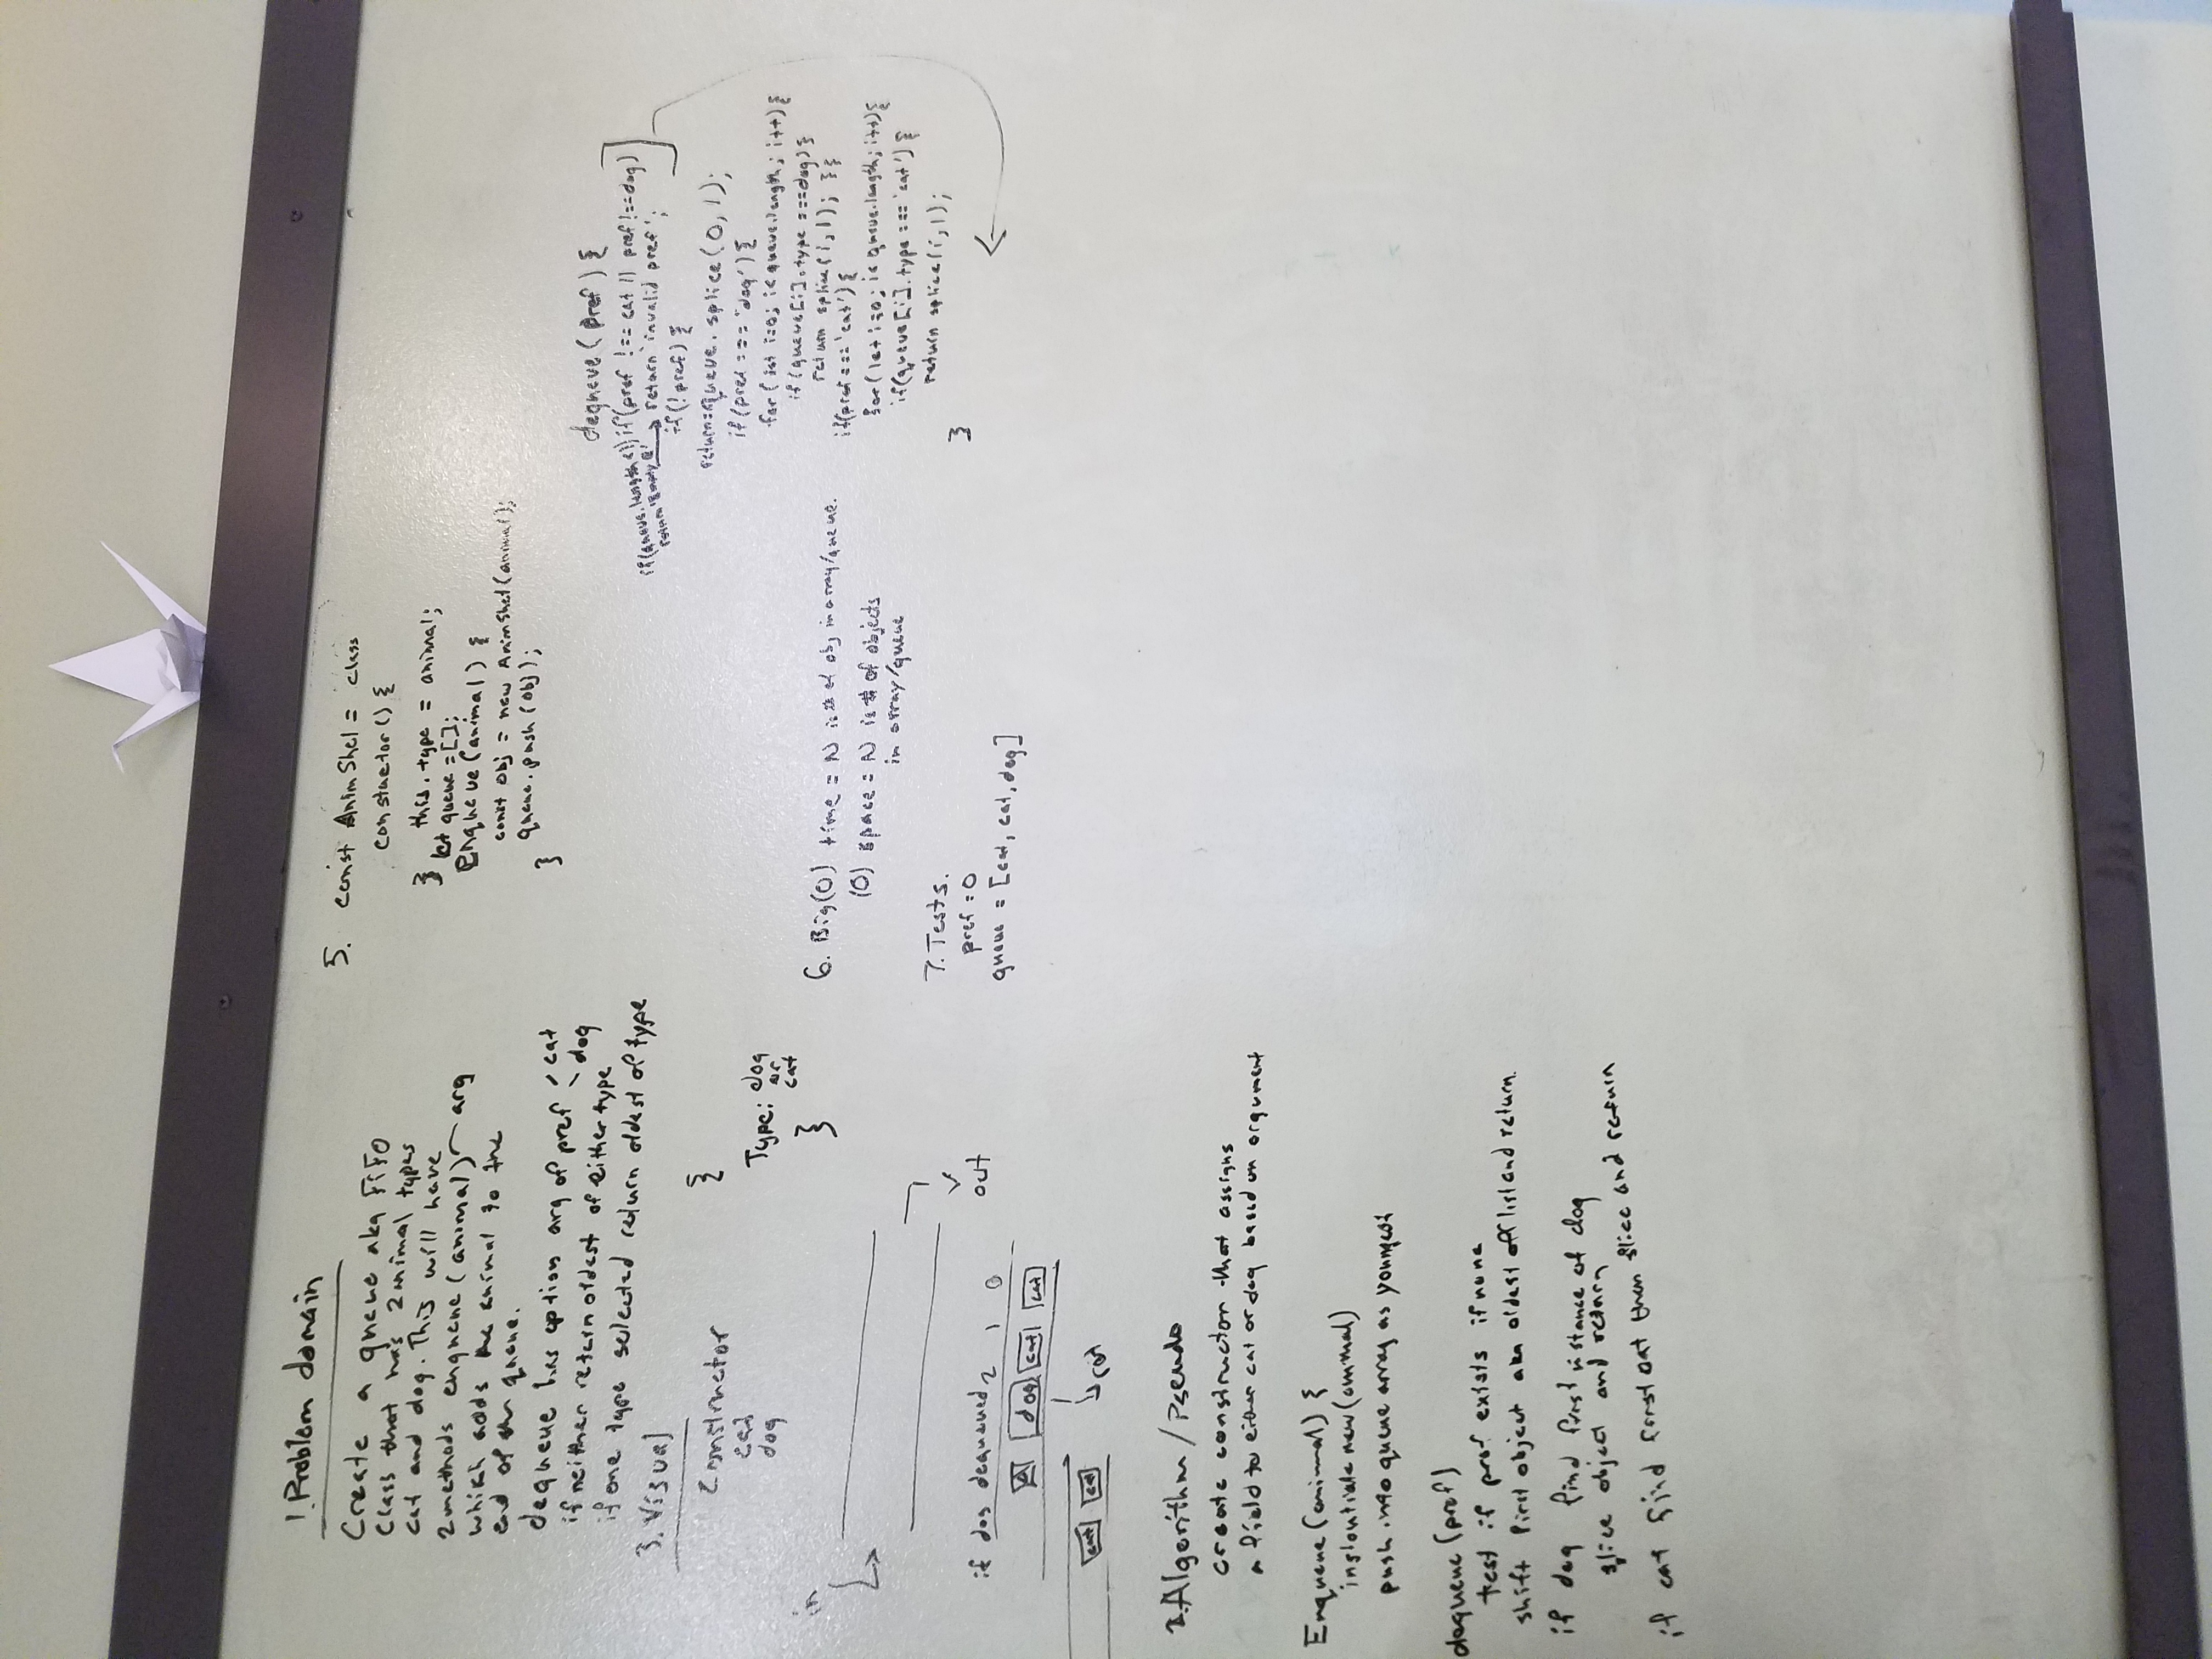 1. Problem domain
Create a queue aka FiFO
Class that has 2 animal types
cat and dog. This will have
2 methods enqueue (animal) arg
which adds the animal to the
end of the queue.
dequeue has option arg of pref cat
dog
if neither return oldest of either type
if one type selected return oldest of type
3. Visual
Constructor
cat
dog
{
Type: dog
or
cat
}
in
out
if dog dequeued 2 1 0
dog cat cat
cat cat
Algorithm / Pseudo
create constructor that assigns
a field to either cat or dog based on argument
Enqueue (animal) {
new (animal)
push into queue array as youngest
dequeue (pref)
test if pref exists if none
shift first object aka oldest off list and return.
if dog find first instance of dog
slice object and return
if cat find first cat then slice and return
5. const AnimShel = class
constuctor () {
this.type = animal;
}
let queue = [];
Enqueue (animal) {
const obj = new AnimShel (animal);
queue.push (obj);
}
6. Big (O) time = N is # of obj in array/queue.
(O) space = N is # of objects
in array/queue
7. Tests.
pref = 0
queue = [cat, cat, dog]
dequeue ( pref ) {
if (pref !== cat || pref !== dog)
if (queue.length
return 'Empty
return 'invalid pref';
if (!pref) {
return queue. splice (0, 1);
if (pref === 'dog') {
for ( let i=0; i< queue.length; i++) {
if (queue[i].type === dog) {
return splice (i, 1); }}
if (pref === 'cat') {
for ( let i=0; i< queue.length; i++) {
if (queue[i].type === 'cat') {
return splice (i, 1);
}